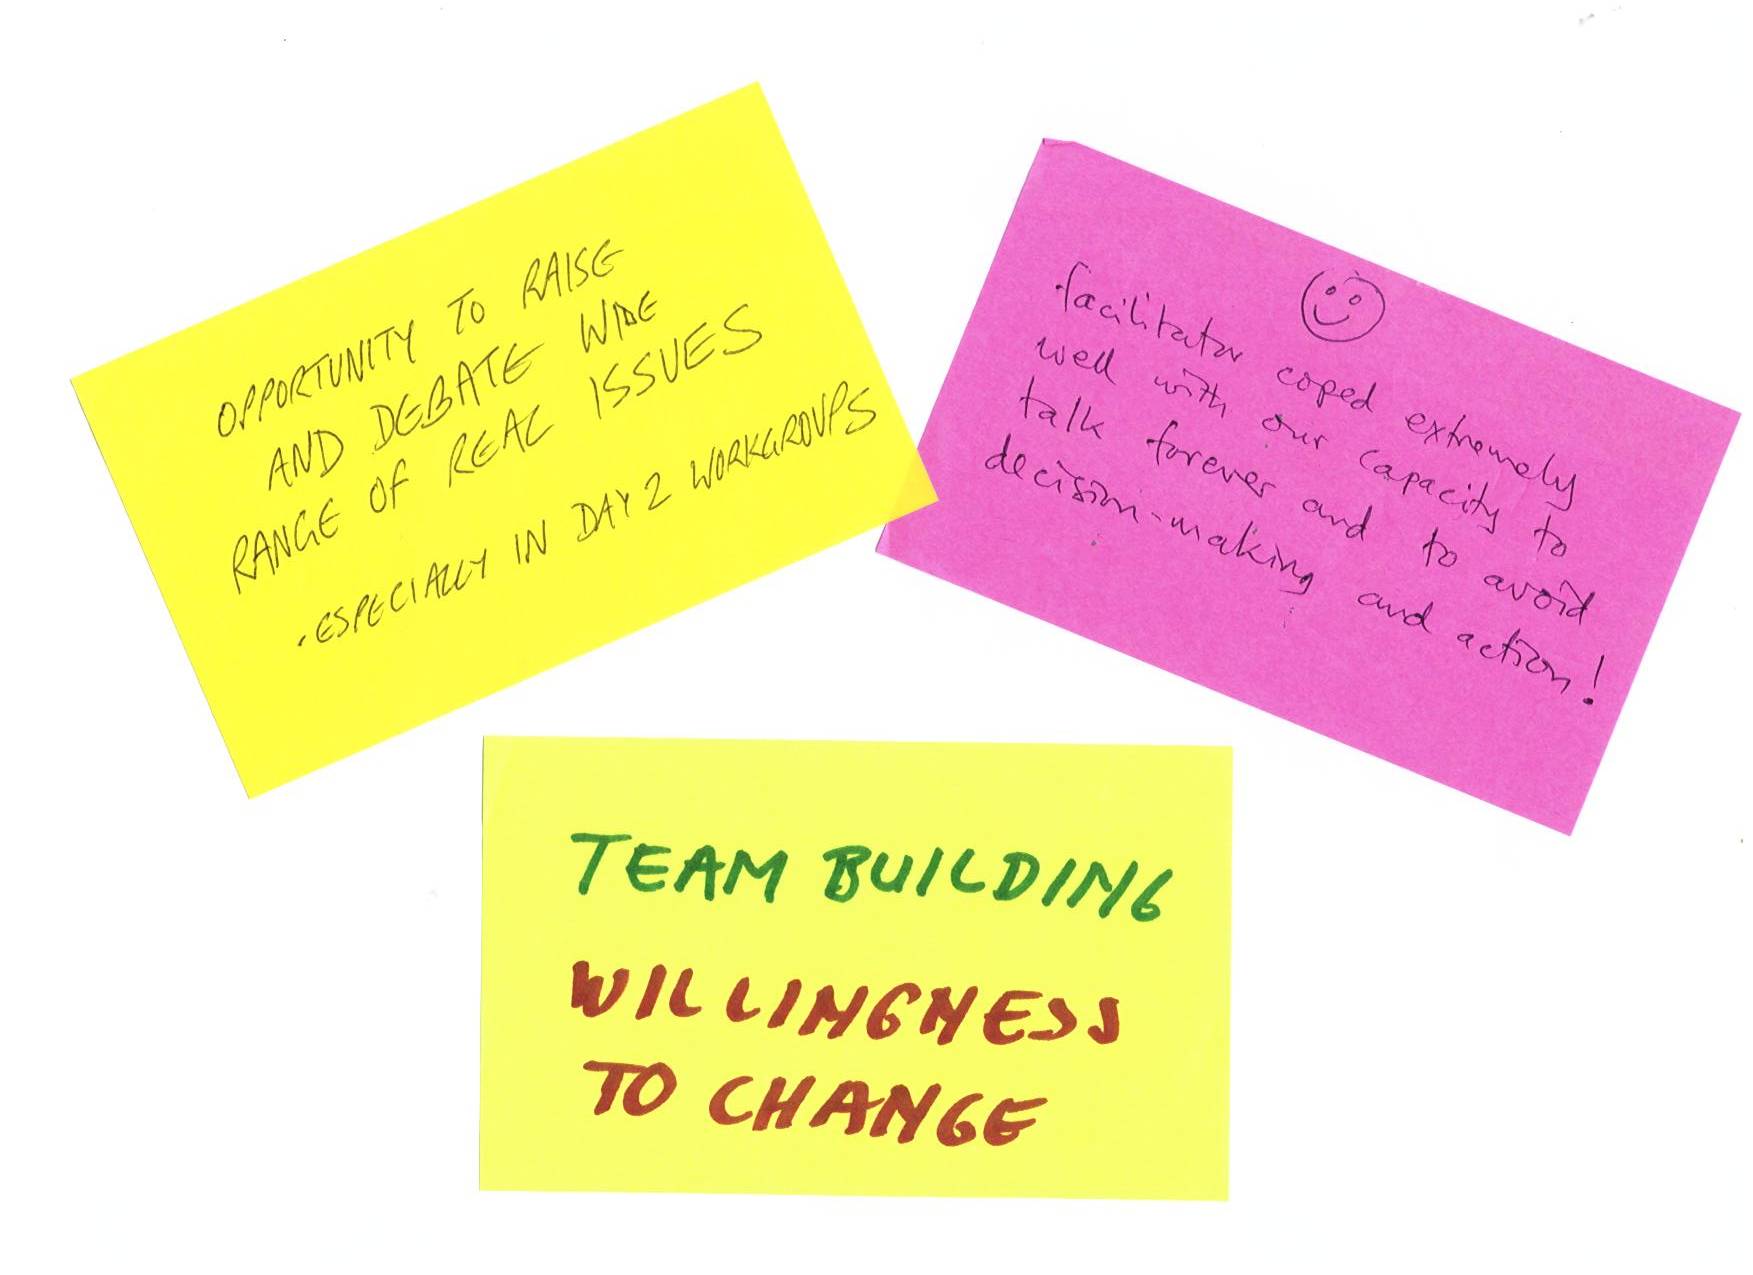 OPPORTUNITY TO RAISE
AND DEBATE WIDE
RANGE OF REAL ISSUES
. ESPECIALLY IN DAY 2 WORKGROUPS
facilitator coped extremely
well with our capacity to
talk forever and to avoid
decision-making and action!
TEAM BUILDING
WILLINGNESS
TO CHANGE